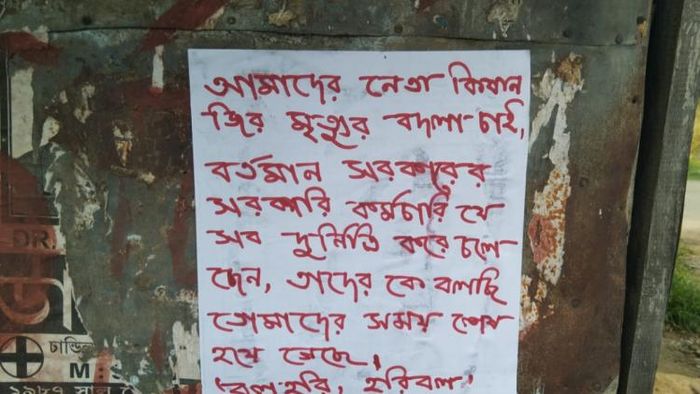 আমাদের নেতা কিষান
জির মৃত্যুর বদলা চাই,
বর্তমান সরকারের
সরকারি কর্মচারি যে
সব দুর্নিতি করে চলে-
ছেন, তাদের কে বলছি
তোমাদের সময় শেষ
হয়ে গেছে,
'বল হরি, হরিবল'
DR.
চাণ্ডিল
M:
১৯৮৭ সাল